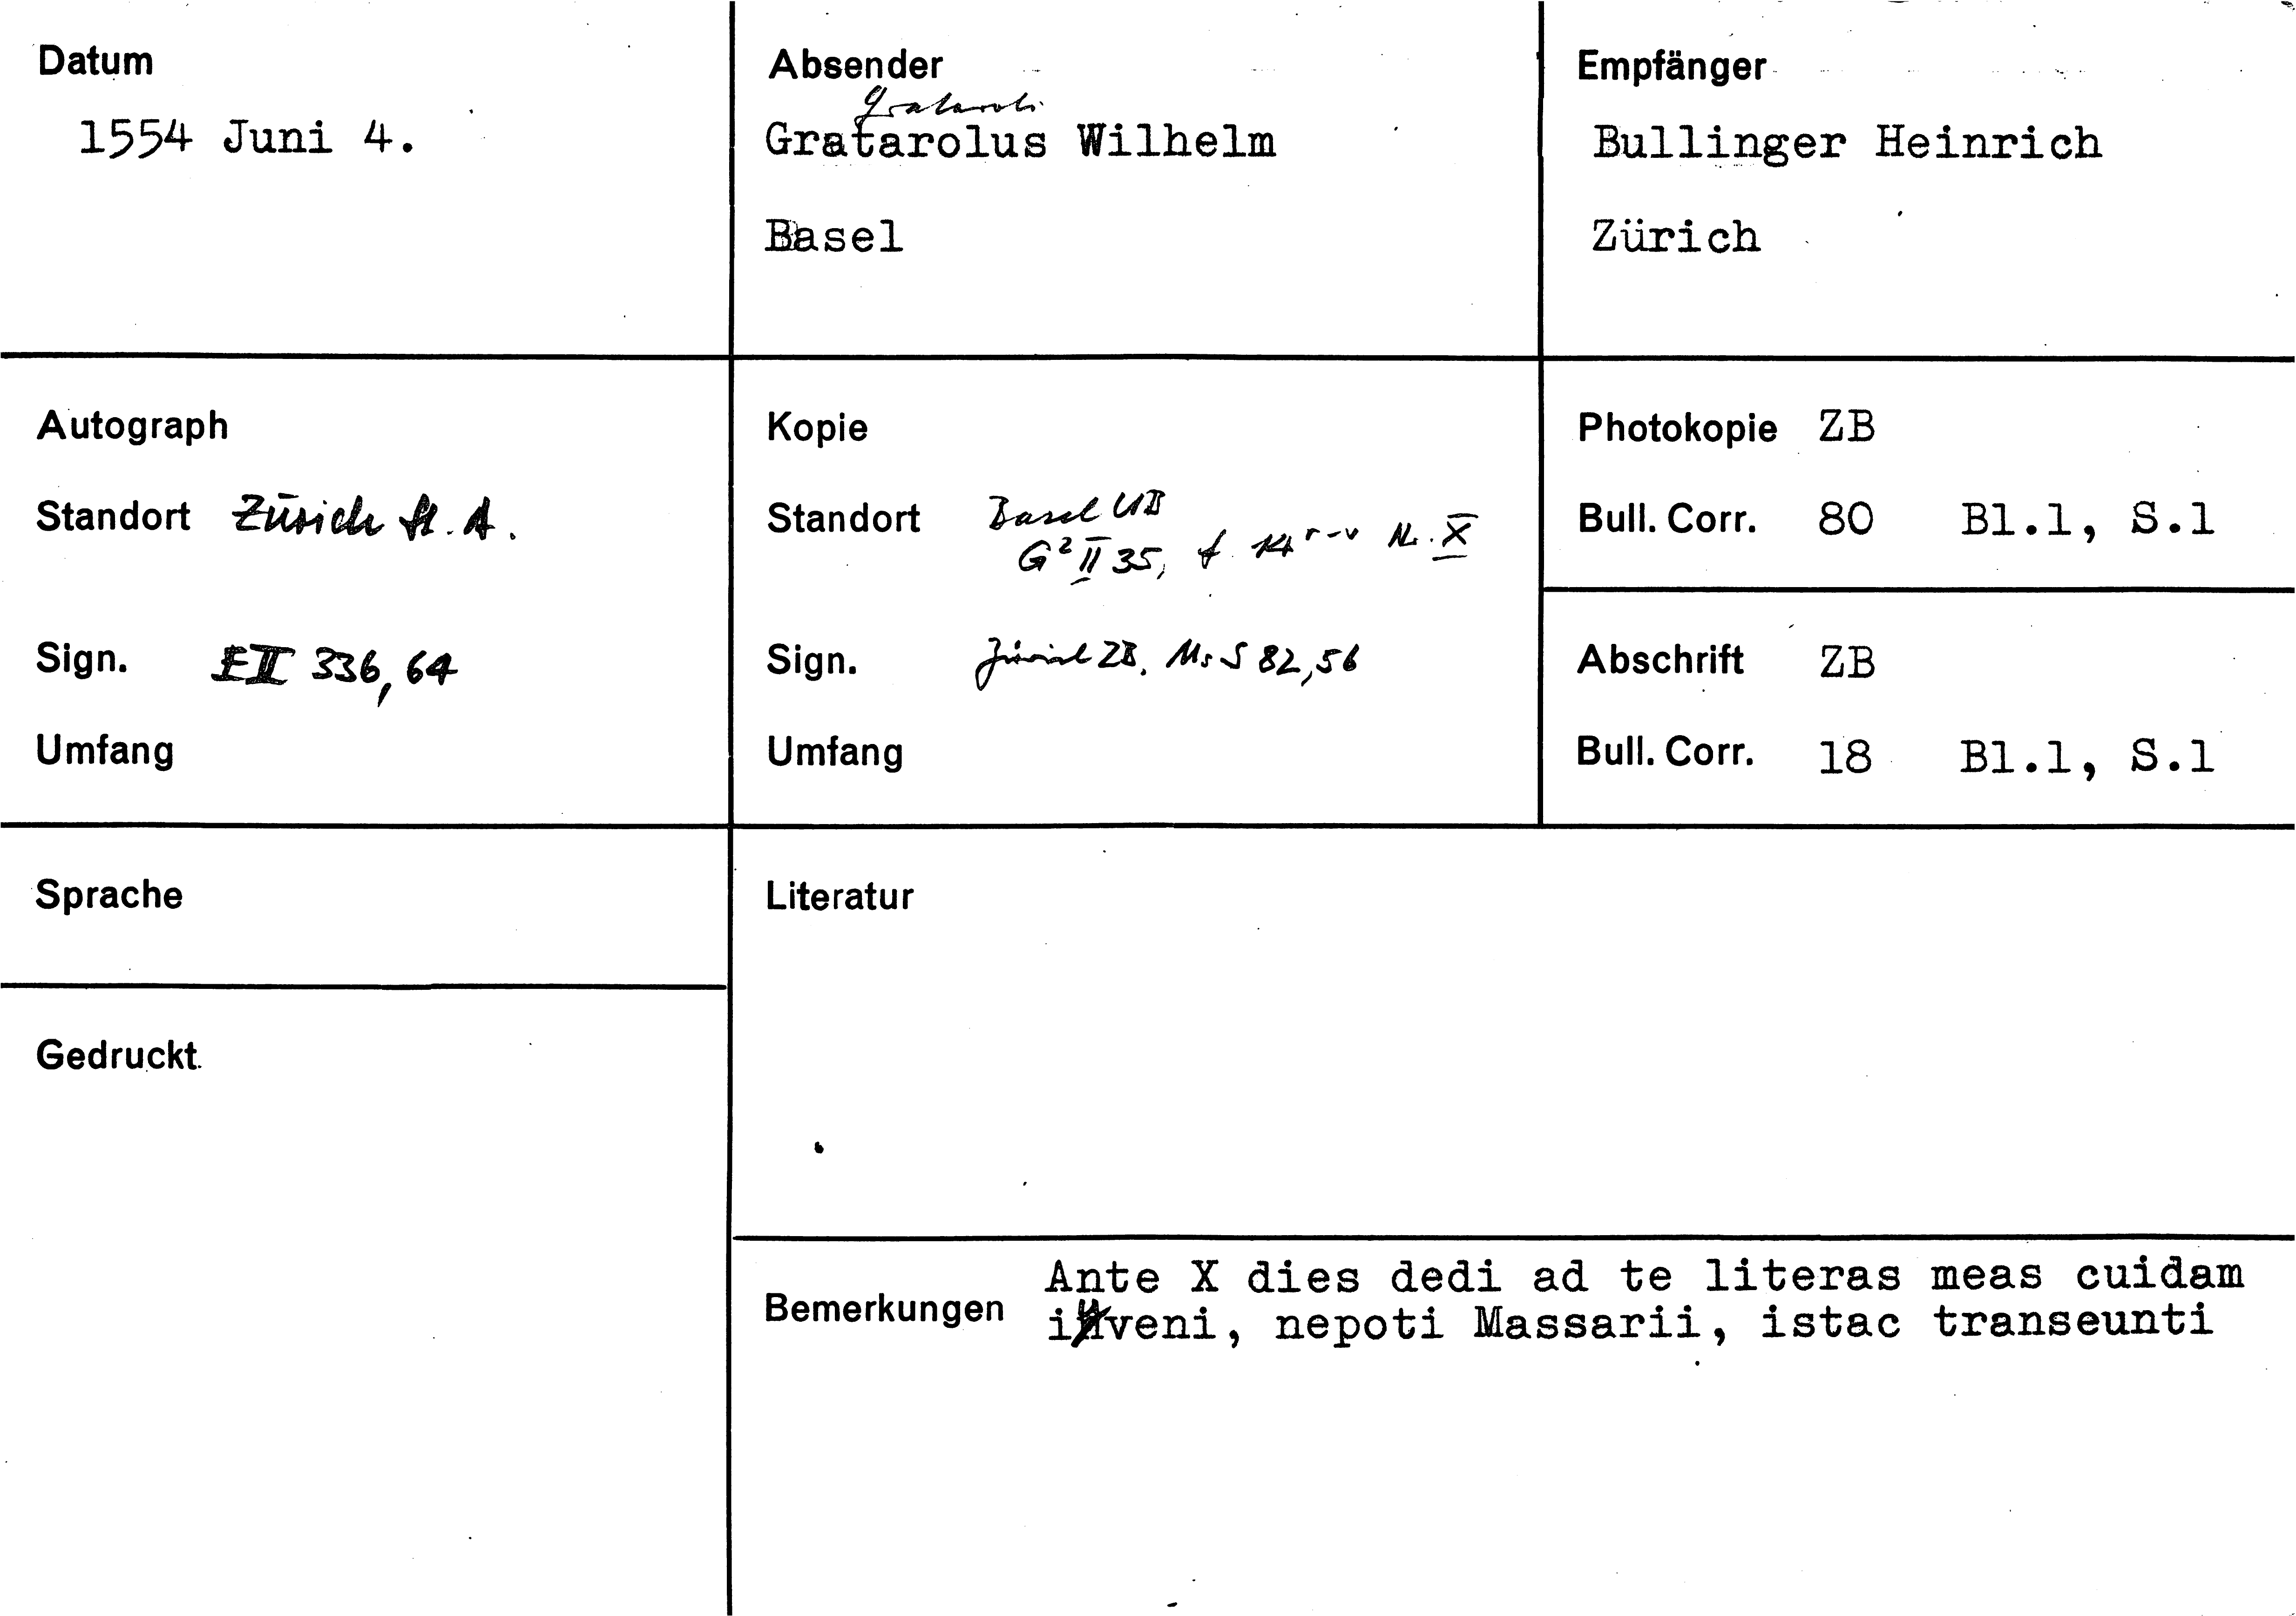 Datum
1554 Juni 4.
Absender
Grataroli
Gratarolus Wilhelm
Basel
Empfänger
Bullinger Heinrich
Zürich
Autograph
Standort Zürich St. A.
Sign. E II 336, 64
Umfang
Kopie
Standort Basel UB
G² II 35, f. 14 r-v Nr. X
Sign. Zürich ZB. Ms S 82,56
Umfang
Photokopie ZB
Bull. Corr. 80 Bl.1, S.1
Abschrift ZB
Bull. Corr. 18 Bl.1, S.1
Sprache
Gedruckt
Literatur
Bemerkungen
Ante X dies dedi ad te literas meas cuidam
iuveni, nepoti Massarii, istac transeunti